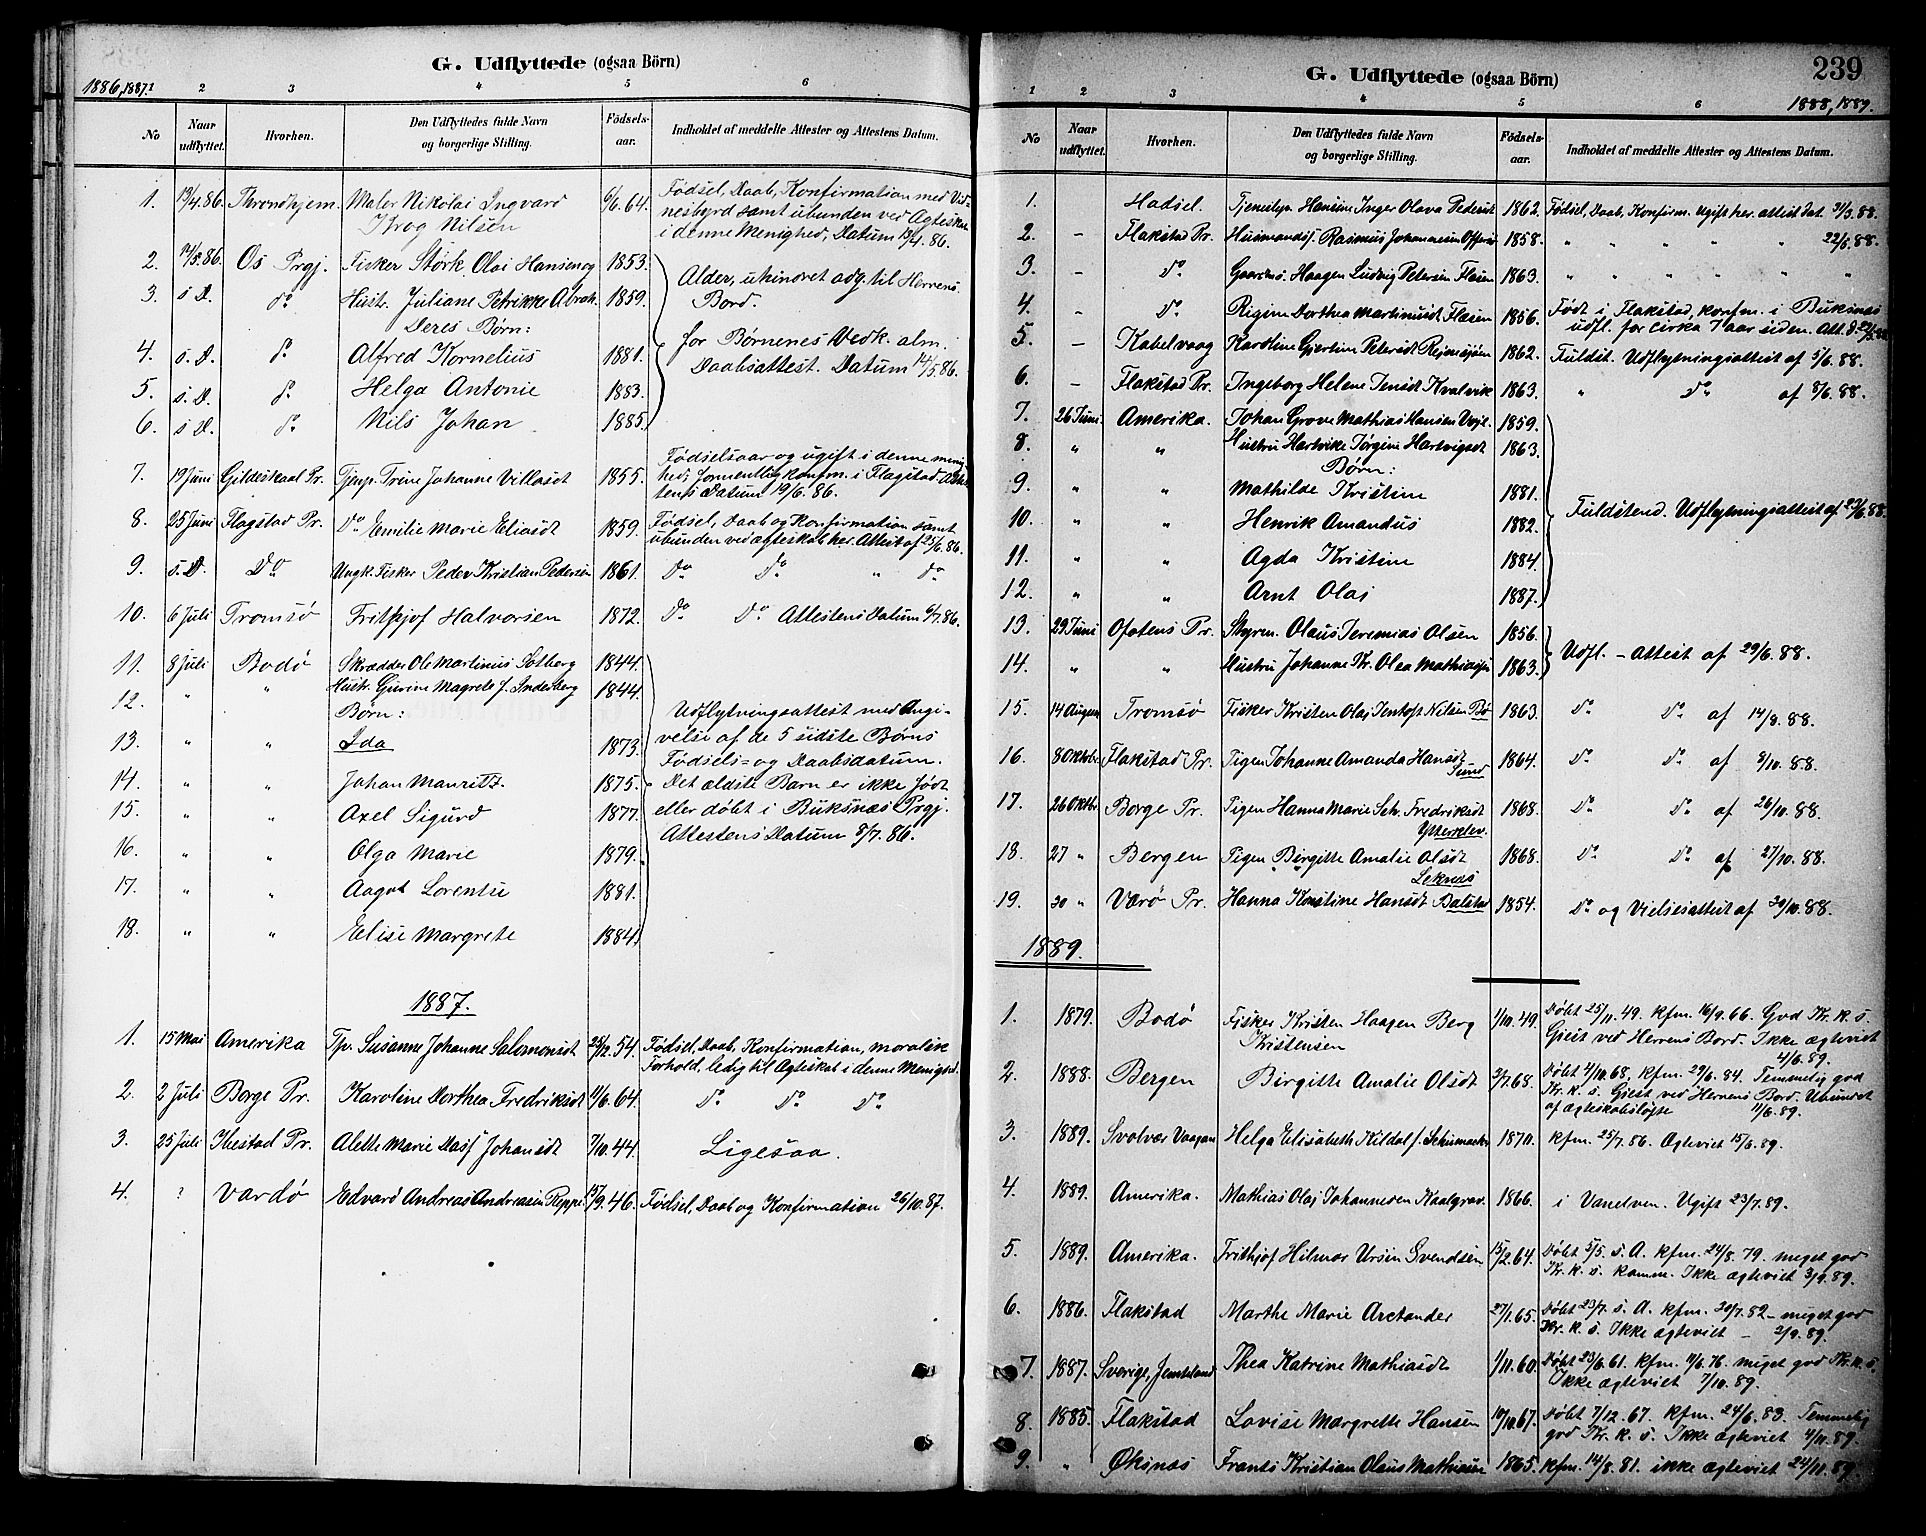 G. Udflyttede (ogsaa Börn)
1886, 1887.
1 2 3 4 5 6
No Naar udflyttet. Hvorhen. Den Udflyttedes fulde Navn og borgerlige Stilling. Fødsels-aar. Indholdet af meddelte Attester og Attestens Datum.
1. 19/4.86. Throndhjem. Maler Nikolai Ingvard 6/6.64. Fødsel, Daab, Konfirmation med Vid-
Krog Nilsen nesbyrd samt ubunden ved Ægteskab
i denne Menighed, Datum 19/4.86.
2. 14/5.86. Os Prgj. Fisker Størk Olai Hansen og 1853. Alder, uhindret adg. til Herrens
3. s. D. do Hust. Juliane Petrikke Abrah. 1859. Bord.
Deres Børn: for Børnenes Vedk. alm.
4. s. D. do Alfred Kornelius 1881. Daabsattest. Datum 14/5.86.
5. s. D. do Helga Antonie 1883.
6. s D. do Nils Johan 1885.
7. 19 Juni Gildeskaal Pr. Tjnp. Trine Johanne Villasdt 1855. Fødselsaar og ugift i denne menig
hed; formentlig konfm. i Flagstad. Attes
tens Datum 19/6.86.
8. 25 Juni Flagstad Pr. Do Emilie Marie Eliasdt 1859. Fødsel, Daab og Konfirmation samt
ubunden ved ægteskab her. Attest af 25/6.86.
9. s. D. Do Ungk. Fisker Peder Kristian Pedersen 1861. Do Do " Do
10. 6 Juli Tromsø Frithjof Halvorsen 1872. Do Do Attestens Datum 6/7.86.
11. 8 Juli Bodø Skrædder Ole Martinus Solberg 1844.
12. " " Hustr. Gurine Magrete f. Inderberg 1844. Udflytningsattest med Angi-
Børn: velse af de 5 sidste Børns
13. " " Ida 1873. Fødsels- og Daabsdatum.
14. " " Johan Mauritz. 1875. Det ældste Barn er ikke født
15. " " Axel Sigurd 1877. eller døbt i Buksnæs Prgj.
16. " " Olga Marie 1879. Attestens Datum 8/7.86.
17. " " Aagot Lorentse 1881.
18. " " Elise Margrete 1884.
1887.
1. 15 Mai Amerika Tp. Susanne Johanne Salomonsdt 25/12.54. Fødsel, Daab, Konfirmation, moralsk
Forhold, ledig til Ægteskab i denne Menighed.
2. 2 Juli Borge Pr. Karoline Dorthea Fredriksdt 11/6.64. Do Do Do
3. 25 Juli Ibestad Pr. Aleth Marie Dass Johansdt 7/10.44. Ligesaa.
4. ? Vardø Edvard Andreas Andreassen Reppe 15/9.46. Fødsel, Daab og Konfirmation 26/10.87.
G. Udflyttede (ogsaa Börn)
239
1888, 1889.
1 2 3 4 5 6
No Naar udflyttet. Hvorhen. Den Udflyttedes fulde Navn og borgerlige Stilling. Fødsels-aar. Indholdet af meddelte Attester og Attestens Datum.
1. Hadsel. Inger Olava Pedersdt 1862. Fødsel, Daab, Konfirm. Ugift her. attest dat 31/3.88.
2. – Flakstad Pr. Husmands. Rasmus Johannesen 1858. " " " " 22/5.88.
3. – do Gaards. Haagen Ludvig Petersen 1863. " " " " "
4. – do Rigine Dorthea Martinusdt 1856. Født i Flakstad, konfm. i Buksnæs
udfl. for cirka 7 aar siden. Att. d.
5. – Kabelvaag Karoline Gjertine Petersdt 1862. Fuldst. Udflytningsattest af 5/6.88.
6. – Flakstad Pr. Ingeborg Helene Jensdt Kvalvik 1863. " Do af 8/6.88.
7. 26 Juni Amerika. Johan Grove Mathias Hansen Voje. 1859.
8. " " Hustru Hartvikke Jørgine Hartvigsdt 1863.
Børn:
9. " " Mathilde Kristine 1881. Fuldstend. Udflytningsattest af 23/6.88.
10. " " Henrik Amandus 1882.
11. " " Agda Kristine 1884.
12. " " Arnt Olai 1887.
13. 29 Juni Ofotens Pr. Styrm. Olaus Jeremias Olsen 1856. Udfl. – Attest af 29/6.88.
14. " " Hustru Johanne Kr. Olea 1863.
15. 14 August Tromsø Fisker Kristen Olai Jentoft Nilsen Bø 1863. Do Do af 14/8.88.
16. 8 Oktbr Flakstad Pr. Pigen Johanne Amanda Hansdt 1864. Do Do af 8/10.88.
Sund
17. 26 Oktbr. Borge Pr. Pigen Hanna Marie Sch. Fredriksdt 1868. Do Do af 26/10.88.
18. 27 " Bergen Pigen Birgitte Amalie Olsdt 1868. Do Do af 27/10.88.
Leknæs
19. 30 " Værø Pr. Hanna Kristine Hansdt Balstad 1854. Do og Vielsesattest af 30/10.88.
1889.
1. 1879. Bodø Fisker Kristen Haagen Berg 1/10.49. Døbt 25/11.49. kfm. 16/9.66. God Kr. k. s.
Kristensen Giest ved Herrens Bord. Ikke ægteviet
4/6.89.
2. 1888. Bergen Birgitte Amalie Olsdt 3/7.68. Døbt 4/10.68, kfm. 29/6.84. Temmelig god
Kr. k. s. Giest ved Herrens Bord. Ubundet
af ægteskabsløfte 11/6.89.
3. 1889. Svolvær Vaagan Helga Elisabeth Kildal f. Schumacher 1870. kfm. 25/7.86. Ægteviet 15/6.89.
4. 1889. Amerika. Mathias Olai Johannesen 1866. i Vandven. Ugift 23/7.89.
5. 1889. Amerika. Frithjof Hilmar Ursin Svendsen 15/2.64. Døbt 5/5. s. A. kfm. 24/8.79. meget god
Kr. k. s. komm. Ikke ægteviet 3/9.89.
6. 1886. Flakstad Marthe Marie Arctander 27/1.65. Døbt 23/7. s. A. kfm. 30/7.82 – meget god
Kr. k. s. Ikke ægteviet – 2/9.89.
7. 1887. Sverige, Jemteland Thea Katrine Mathiasdt 1/11.60. Døbt 23/6.61. kfm. 11/6.76. meget god Kr. k. s.
Ikke ægteviet 7/10.89.
8. 1885. Flakstad Lovise Margrethe Hansen 10/10.67. Døbt 7/12.67. kfm. 24/6.83. Temmelig
god Kr. k. s. Ikke ægteviet 4/11.89.
9. " Øksnæs Frants Kristian Olaus Mathisen 1865. kfm. 14/8.81. ikke ægteviet 24/11.89.